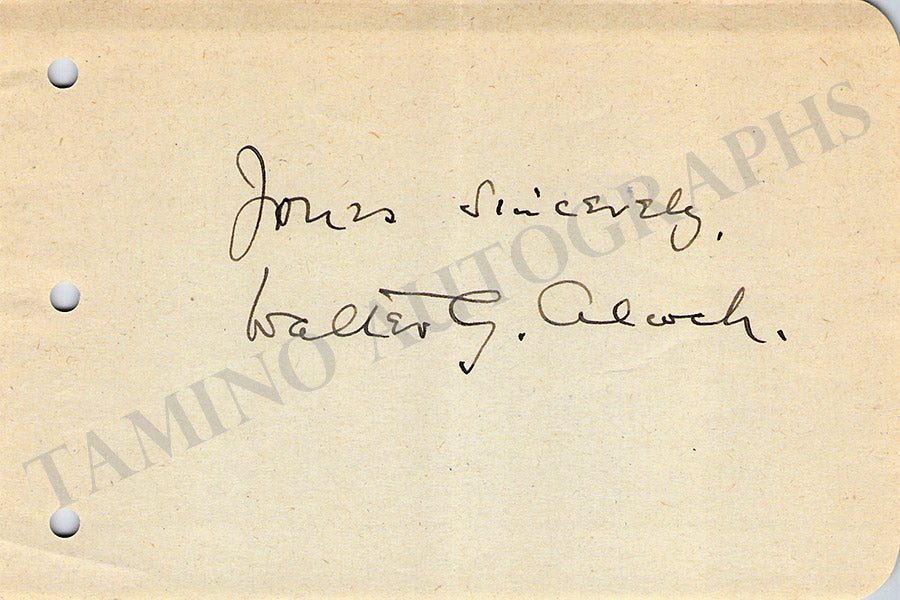 Yours sincerely,
Walter G. Alcock.
TAMINO AUTOGRAPHS